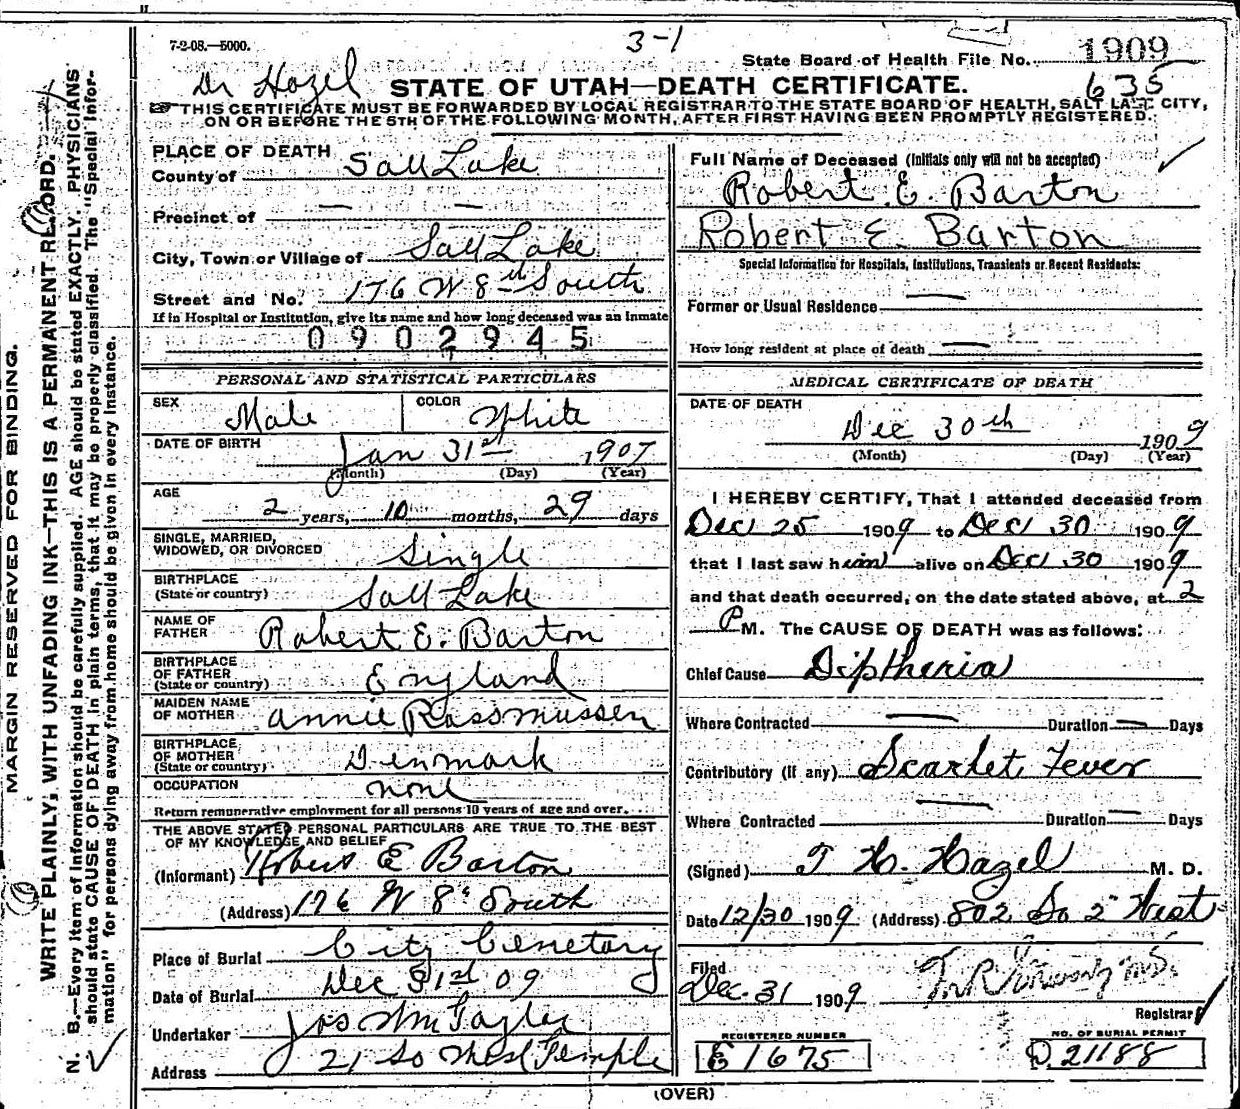 7-2-08.—5000.
3-1
State Board of Health File No. 1909
Dr Hazel
635
STATE OF UTAH—DEATH CERTIFICATE.
THIS CERTIFICATE MUST BE FORWARDED BY LOCAL REGISTRAR TO THE STATE BOARD OF HEALTH, SALT LAKE CITY,
ON OR BEFORE THE 5TH OF THE FOLLOWING MONTH, AFTER FIRST HAVING BEEN PROMPTLY REGISTERED.
MARGIN RESERVED FOR BINDING.
WRITE PLAINLY, WITH UNFADING INK—THIS IS A PERMANENT RECORD.
N. B.—Every item of information should be carefully supplied. AGE should be stated EXACTLY. PHYSICIANS
should state CAUSE OF DEATH in plain terms, that it may be properly classified. The "Special Infor-
mation" for persons dying away from home should be given in every instance.
PLACE OF DEATH
County of Salt Lake
Precinct of — —
City, Town or Village of Salt Lake
Street and No. 176 W 8th South
If in Hospital or Institution, give its name and how long deceased was an inmate
0902945
PERSONAL AND STATISTICAL PARTICULARS
SEX Male COLOR White
DATE OF BIRTH Jan 31st 1907
(Month) (Day) (Year)
AGE
2 years, 10 months, 29 days
SINGLE, MARRIED,
WIDOWED, OR DIVORCED Single
BIRTHPLACE
(State or country) Salt Lake
NAME OF
FATHER Robert E. Barton
BIRTHPLACE
OF FATHER
(State or country) England
MAIDEN NAME
OF MOTHER Annie Rassmussen
BIRTHPLACE
OF MOTHER
(State or country) Denmark
OCCUPATION none
Return remunerative employment for all persons 10 years of age and over.
THE ABOVE STATED PERSONAL PARTICULARS ARE TRUE TO THE BEST
OF MY KNOWLEDGE AND BELIEF
(Informant) Robert E Barton
(Address) 176 W 8" South
Place of Burial City Cemetary
Date of Burial Dec 31st 09
Undertaker Jos Wm Taylor
Address 21 So West Temple
Full Name of Deceased (Initials only will not be accepted)
Robert E. Barton
Robert E. Barton
Special Information for Hospitals, Institutions, Transients or Recent Residents:
Former or Usual Residence —
How long resident at place of death —
MEDICAL CERTIFICATE OF DEATH
DATE OF DEATH
Dec 30th 1909
(Month) (Day) (Year)
I HEREBY CERTIFY, That I attended deceased from
Dec 25 1909 to Dec 30 1909
that I last saw him alive on Dec 30 1909
and that death occurred, on the date stated above, at 2
P M. The CAUSE OF DEATH was as follows:
Chief Cause Diptheria
Where Contracted — Duration — Days
Contributory (If any) Scarlet Fever
Where Contracted — Duration — Days
(Signed) T H. Hazel M. D.
Date 12/30 1909 (Address) 802 So 2" West
Filed
Dec. 31 1909
Registrar
REGISTERED NUMBER
E 1675
NO. OF BURIAL PERMIT
D. 21188
(OVER)